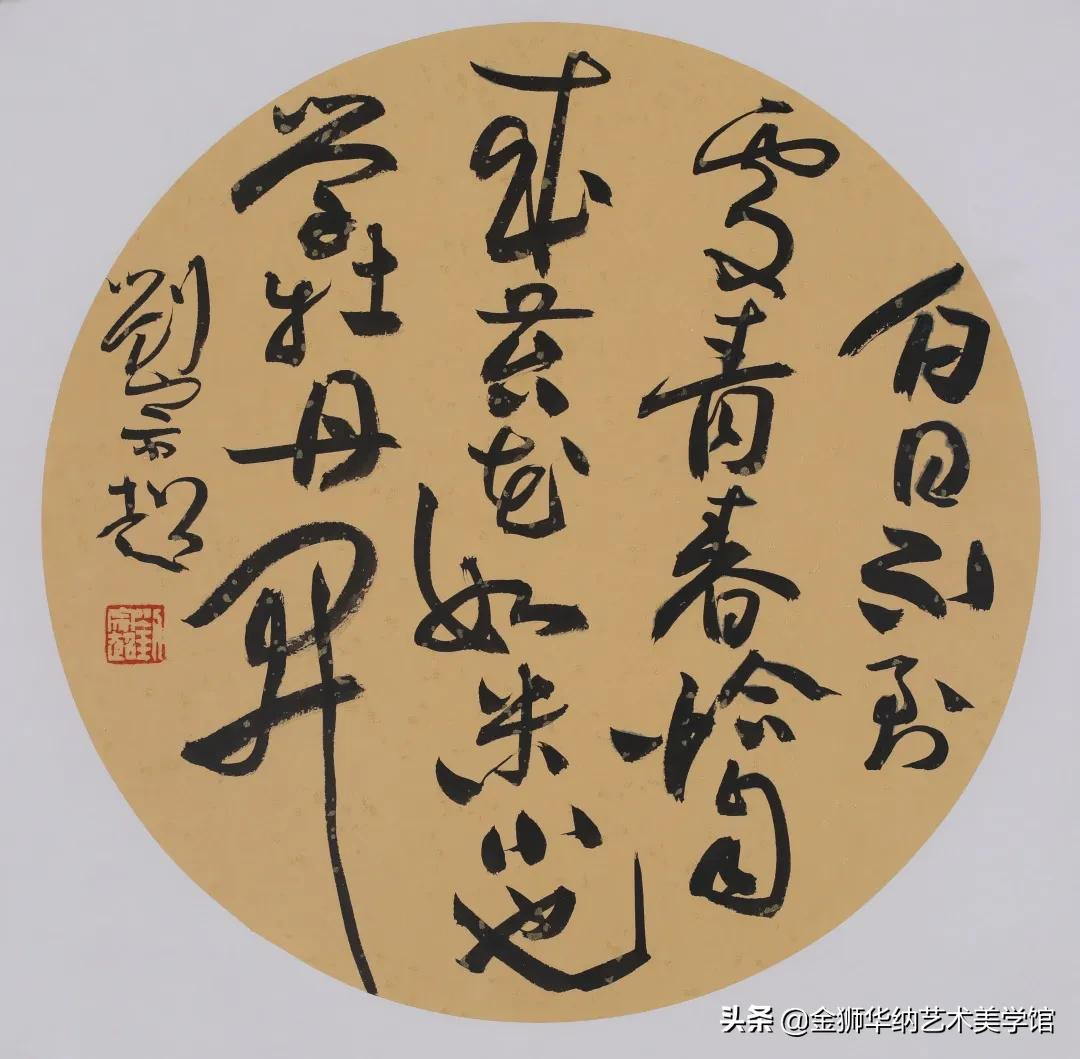 白日不到
處青春恰自
來苔花如米小也
学牡丹開
劉宗超
头条 @金狮华纳艺术美学馆